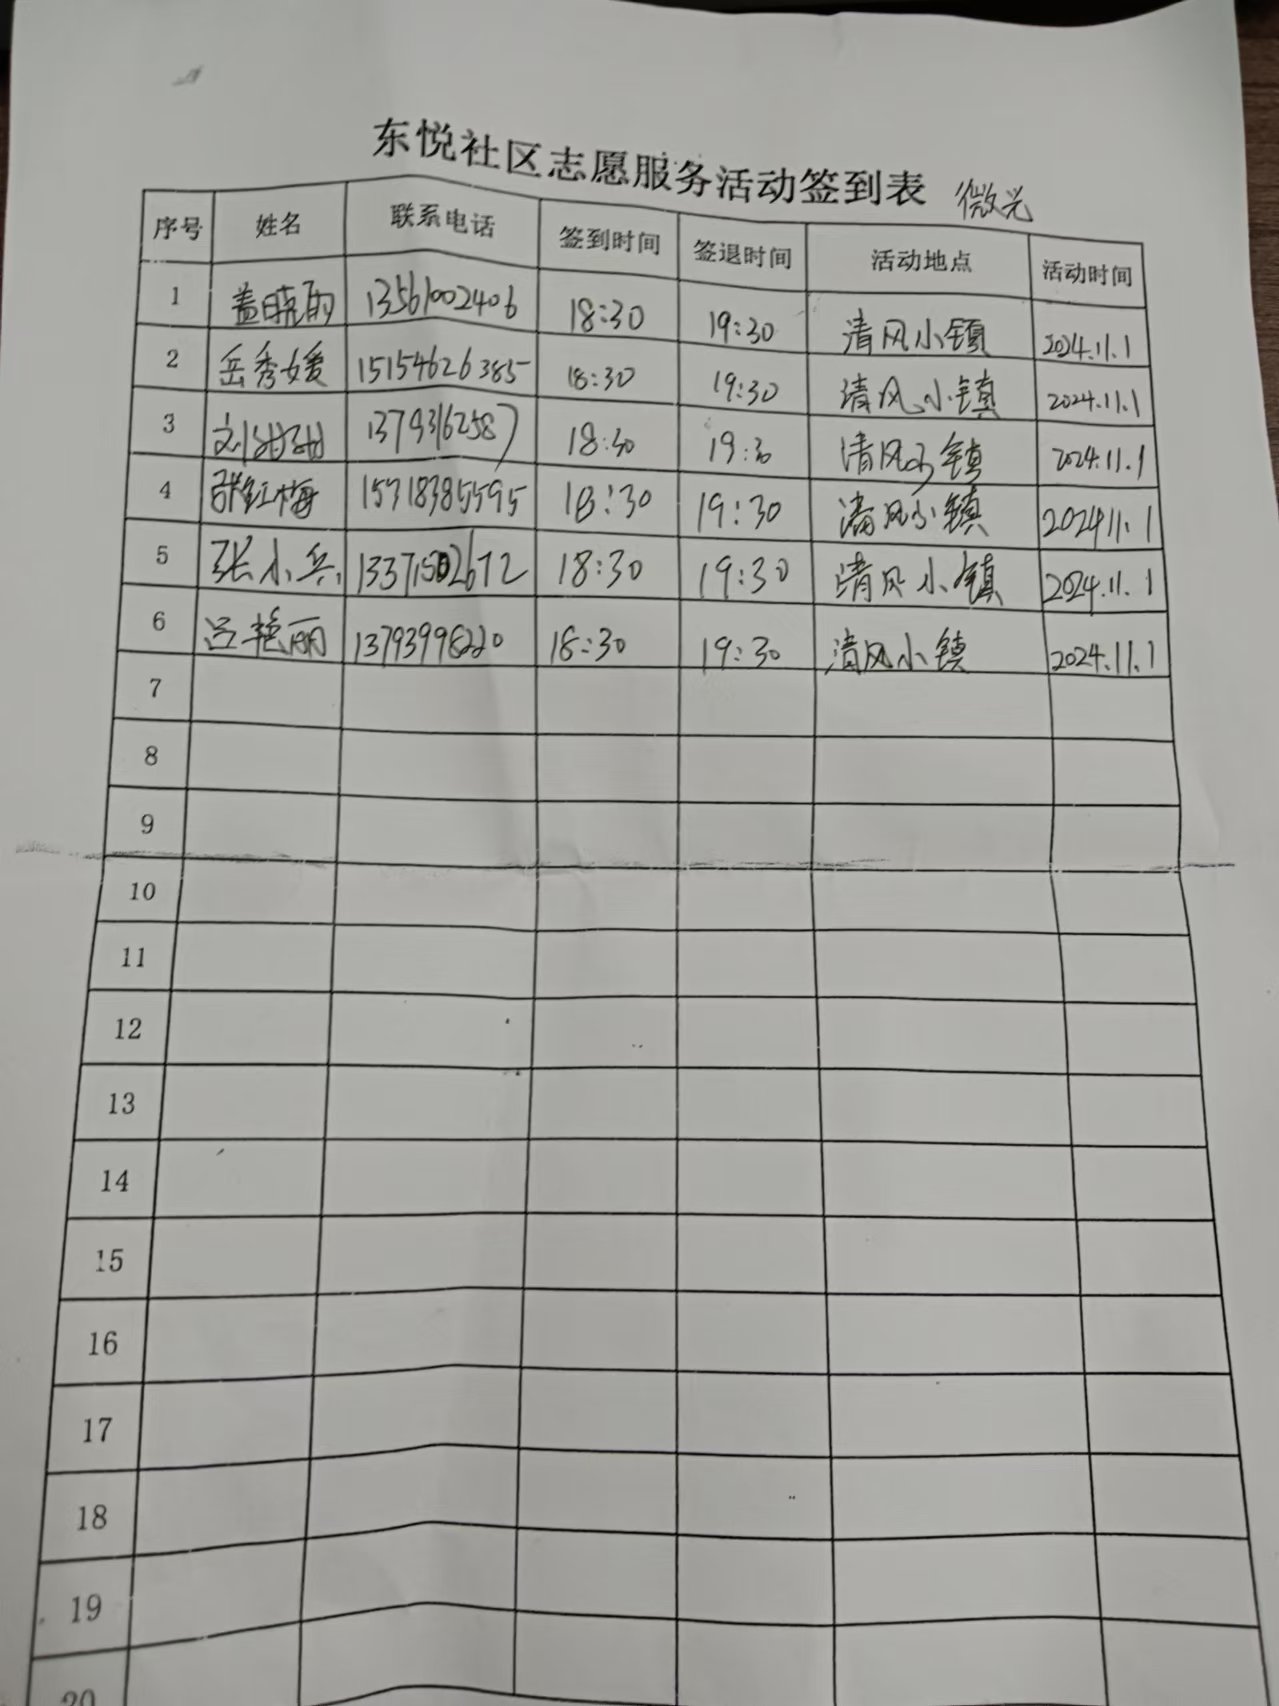 东悦社区志愿服务活动签到表 微光
序号 姓名 联系电话 签到时间 签退时间 活动地点 活动时间
1 盖晓 13561002406 18:30 19:30 清风小镇 2024.11.1
2 岳秀媛 15154626385 18:30 19:30 清风小镇 2024.11.1
3 刘甜甜 13793162587 18:30 19:30 清风小镇 2024.11.1
4 张红梅 15718385595 18:30 19:30 清风小镇 2024.11.1
5 张小兵 13371502672 18:30 19:30 清风小镇 2024.11.1
6 吕艳丽 13793998220 18:30 19:30 清风小镇 2024.11.1
7
8
9
10
11
12
13
14
15
16
17
18
19
20